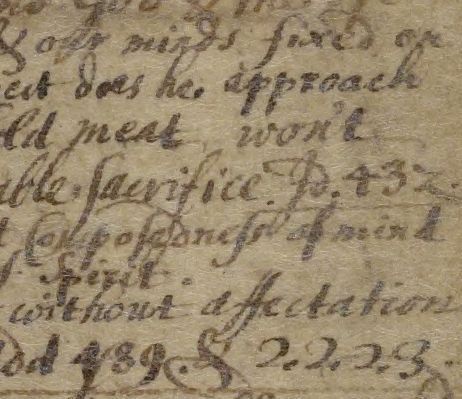 & our minds fixed on
does he approach
meat won't
able sacrifice. Ib. 432.
Composedness of mind
Spirit.
without affectation
489. & 2.2.2.3.